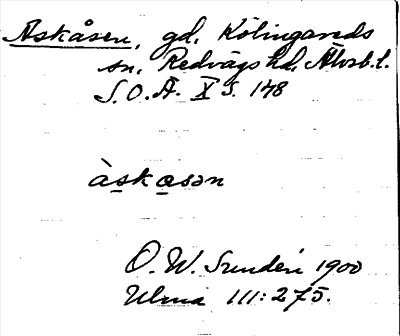 Askåsen, gd, Kölingareds
sn, Redvägs hd, Älvsb. l.
S.O.Ä. X s. 148
àskasən
O. W. Sundén 1900
Ulma 111:275.